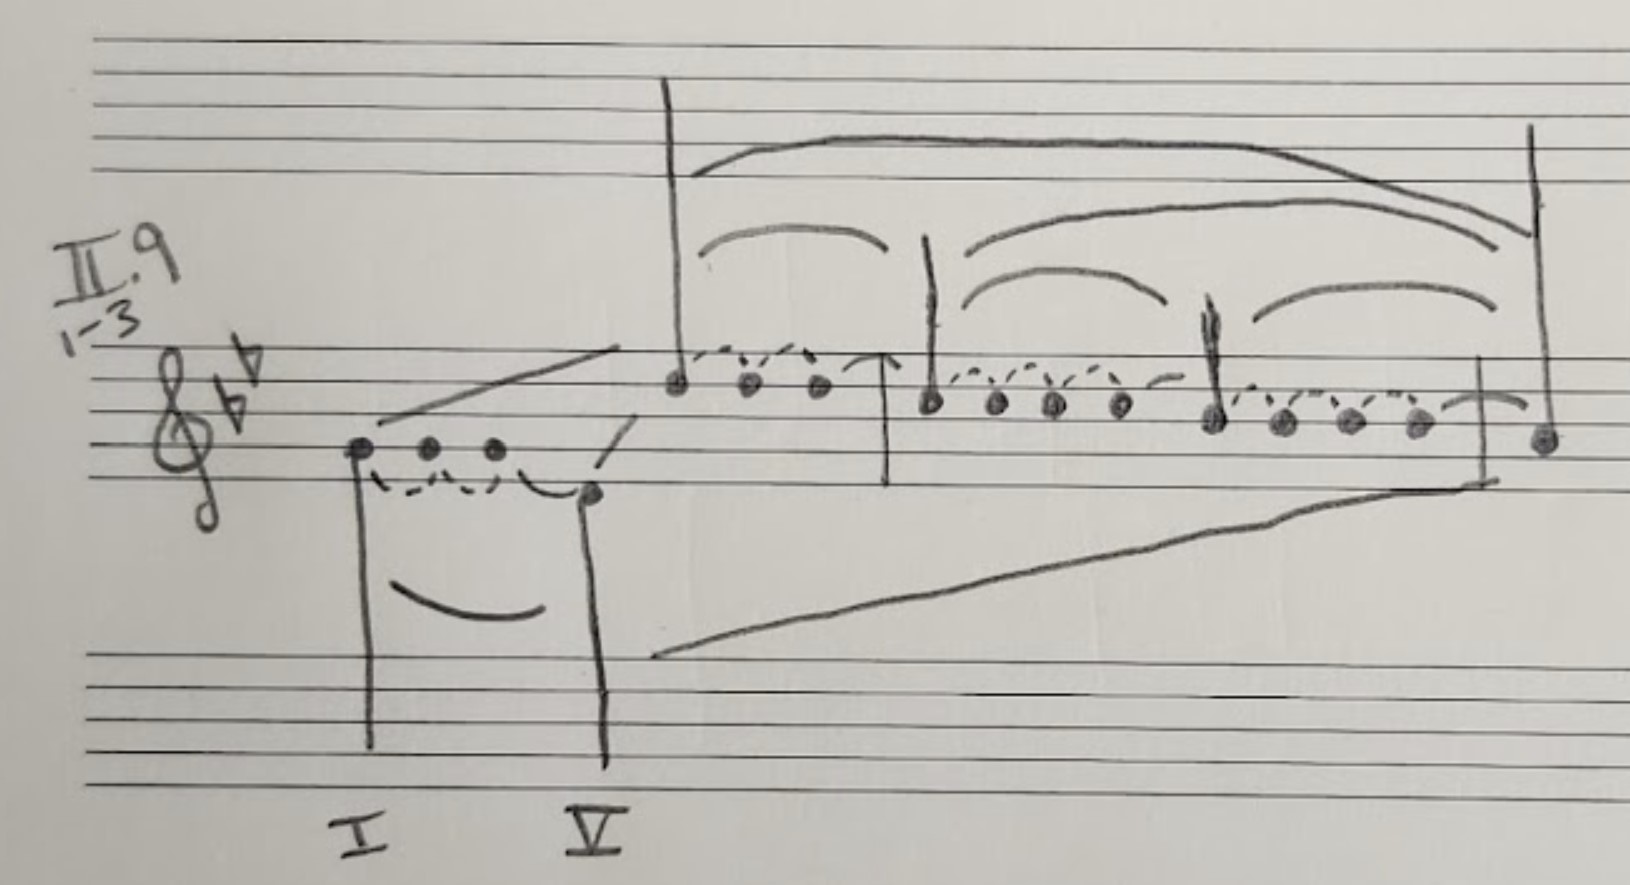 II.9
1-3
I V